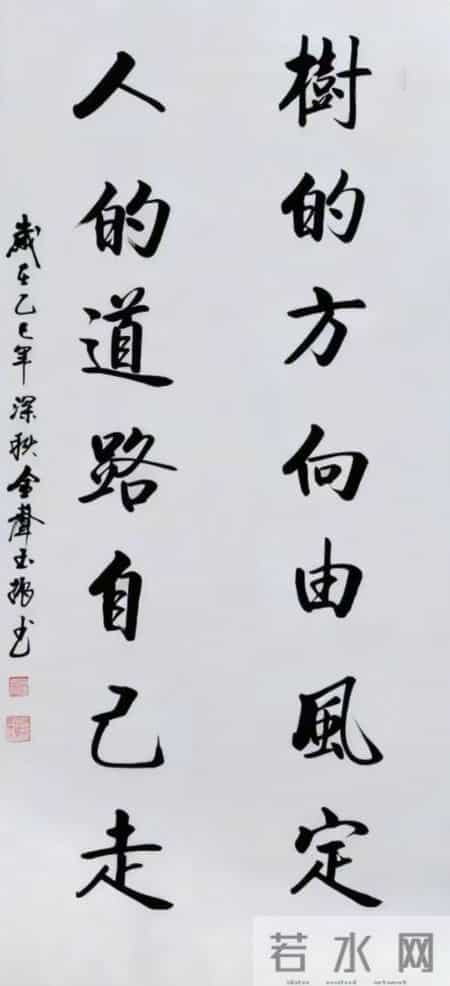 樹的方向由風定
人的道路自己走
歲在乙巳年深秋金聲玉振书
若水网